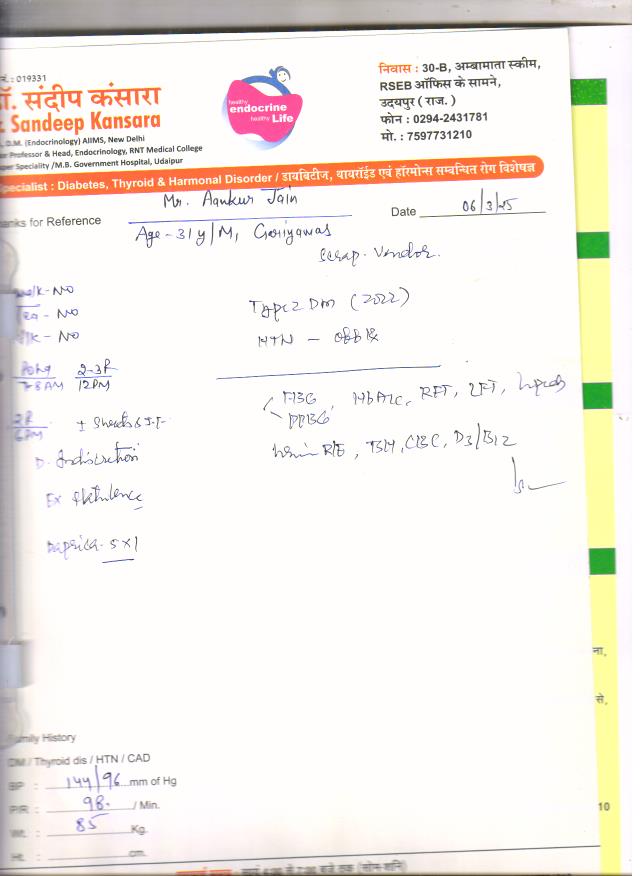 नं. : 019331
डॉ. संदीप कंसारा
Sandeep Kansara
D.M. (Endocrinology) AIIMS, New Delhi
Professor & Head, Endocrinology, RNT Medical College
Speciality /M.B. Government Hospital, Udaipur
healthy
endocrine
healthy Life
निवास : 30-B, अम्बामाता स्कीम,
RSEB ऑफिस के सामने,
उदयपुर ( राज. )
फोन : 0294-2431781
मो. : 7597731210
Specialist : Diabetes, Thyroid & Harmonal Disorder / डायबिटीज, थायरॉईड एवं हॉरमोन्स सम्बन्धित रोग विशेषज्ञ
Mr. Aankur Jain
Thanks for Reference
Date 06/3/25
Age - 31 y/M, Goriyawas
Scrap. Vendor.
NO
NO
NO
Type 2 DM (2022)
HTN -
Poha 2-3R
7-8AM 12PM
FBG, HbA1c, RFT, LFT, Lipids
PPBG
2R
6PM
Urine R/E, TSH, CBC, D3/B12
D. Indiscretion
Ex Flatulence
Daprica - 5 x 1
ना,
से,
Family History
DM / Thyroid dis / HTN / CAD
BP : 144/96 mm of Hg
P/R : 98. / Min.
Wt. : 85 Kg.
Ht. : cm.
10